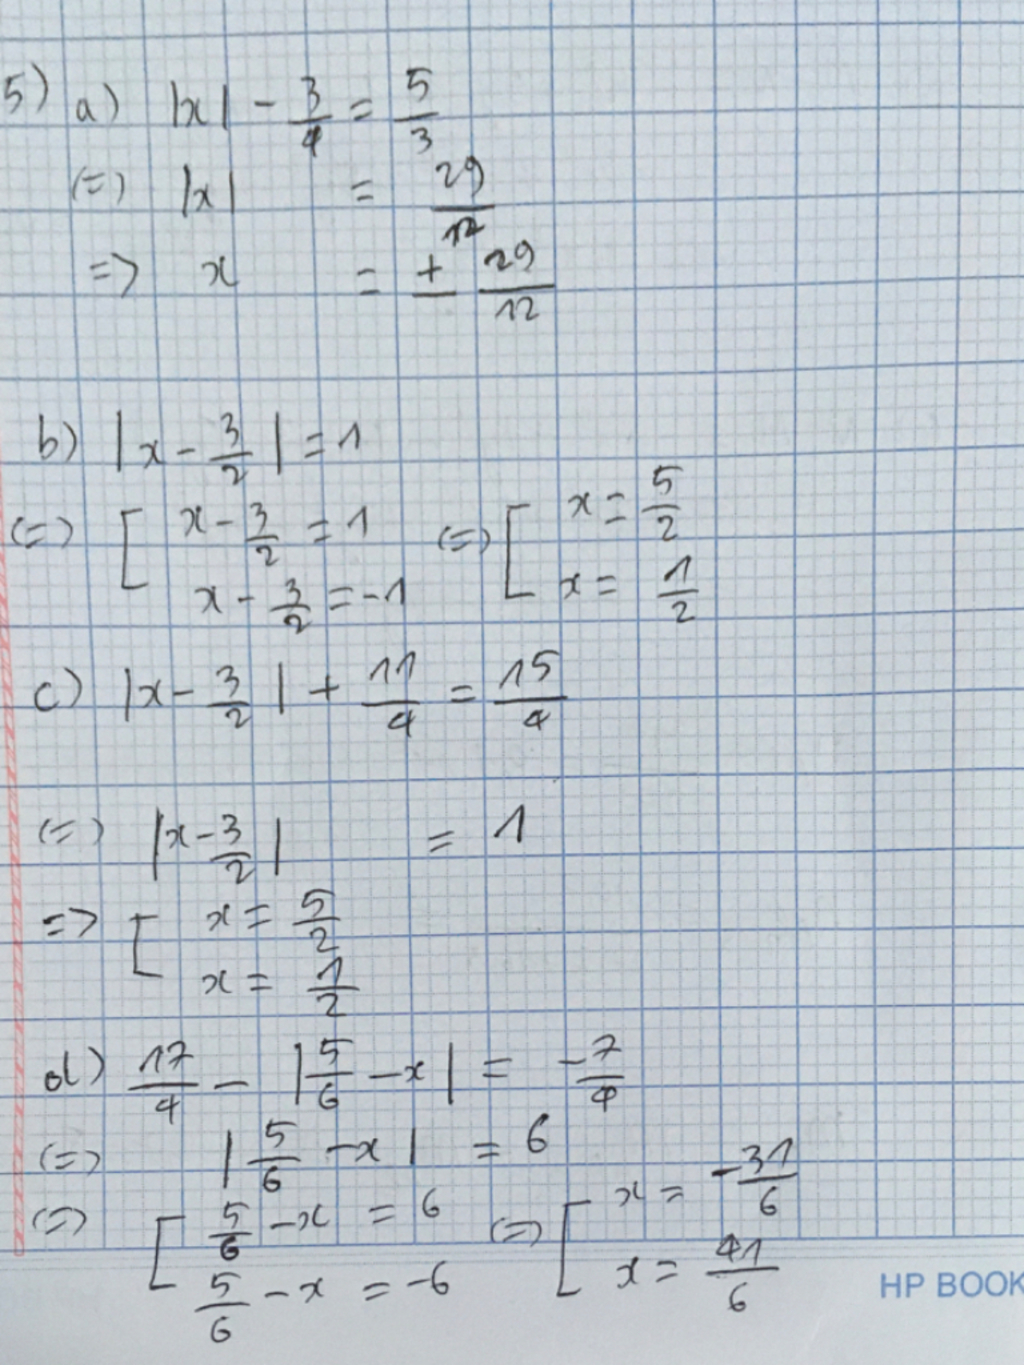 5) a) |x| - 3/4 = 5/3
(=) |x| = 29/12
=> x = ± 29/12
b) |x - 3/2| = 1
(=) [ x - 3/2 = 1 (=) [ x = 5/2
x - 3/2 = -1 x = 1/2
c) |x - 3/2| + 11/4 = 15/4
(=) |x - 3/2| = 1
=> [ x = 5/2
x = 1/2
d) 17/4 - |5/6 - x| = -7/4
(=) |5/6 - x| = 6
(=) [ 5/6 - x = 6 (=) [ x = -31/6
5/6 - x = -6 x = 41/6
HP BOOK